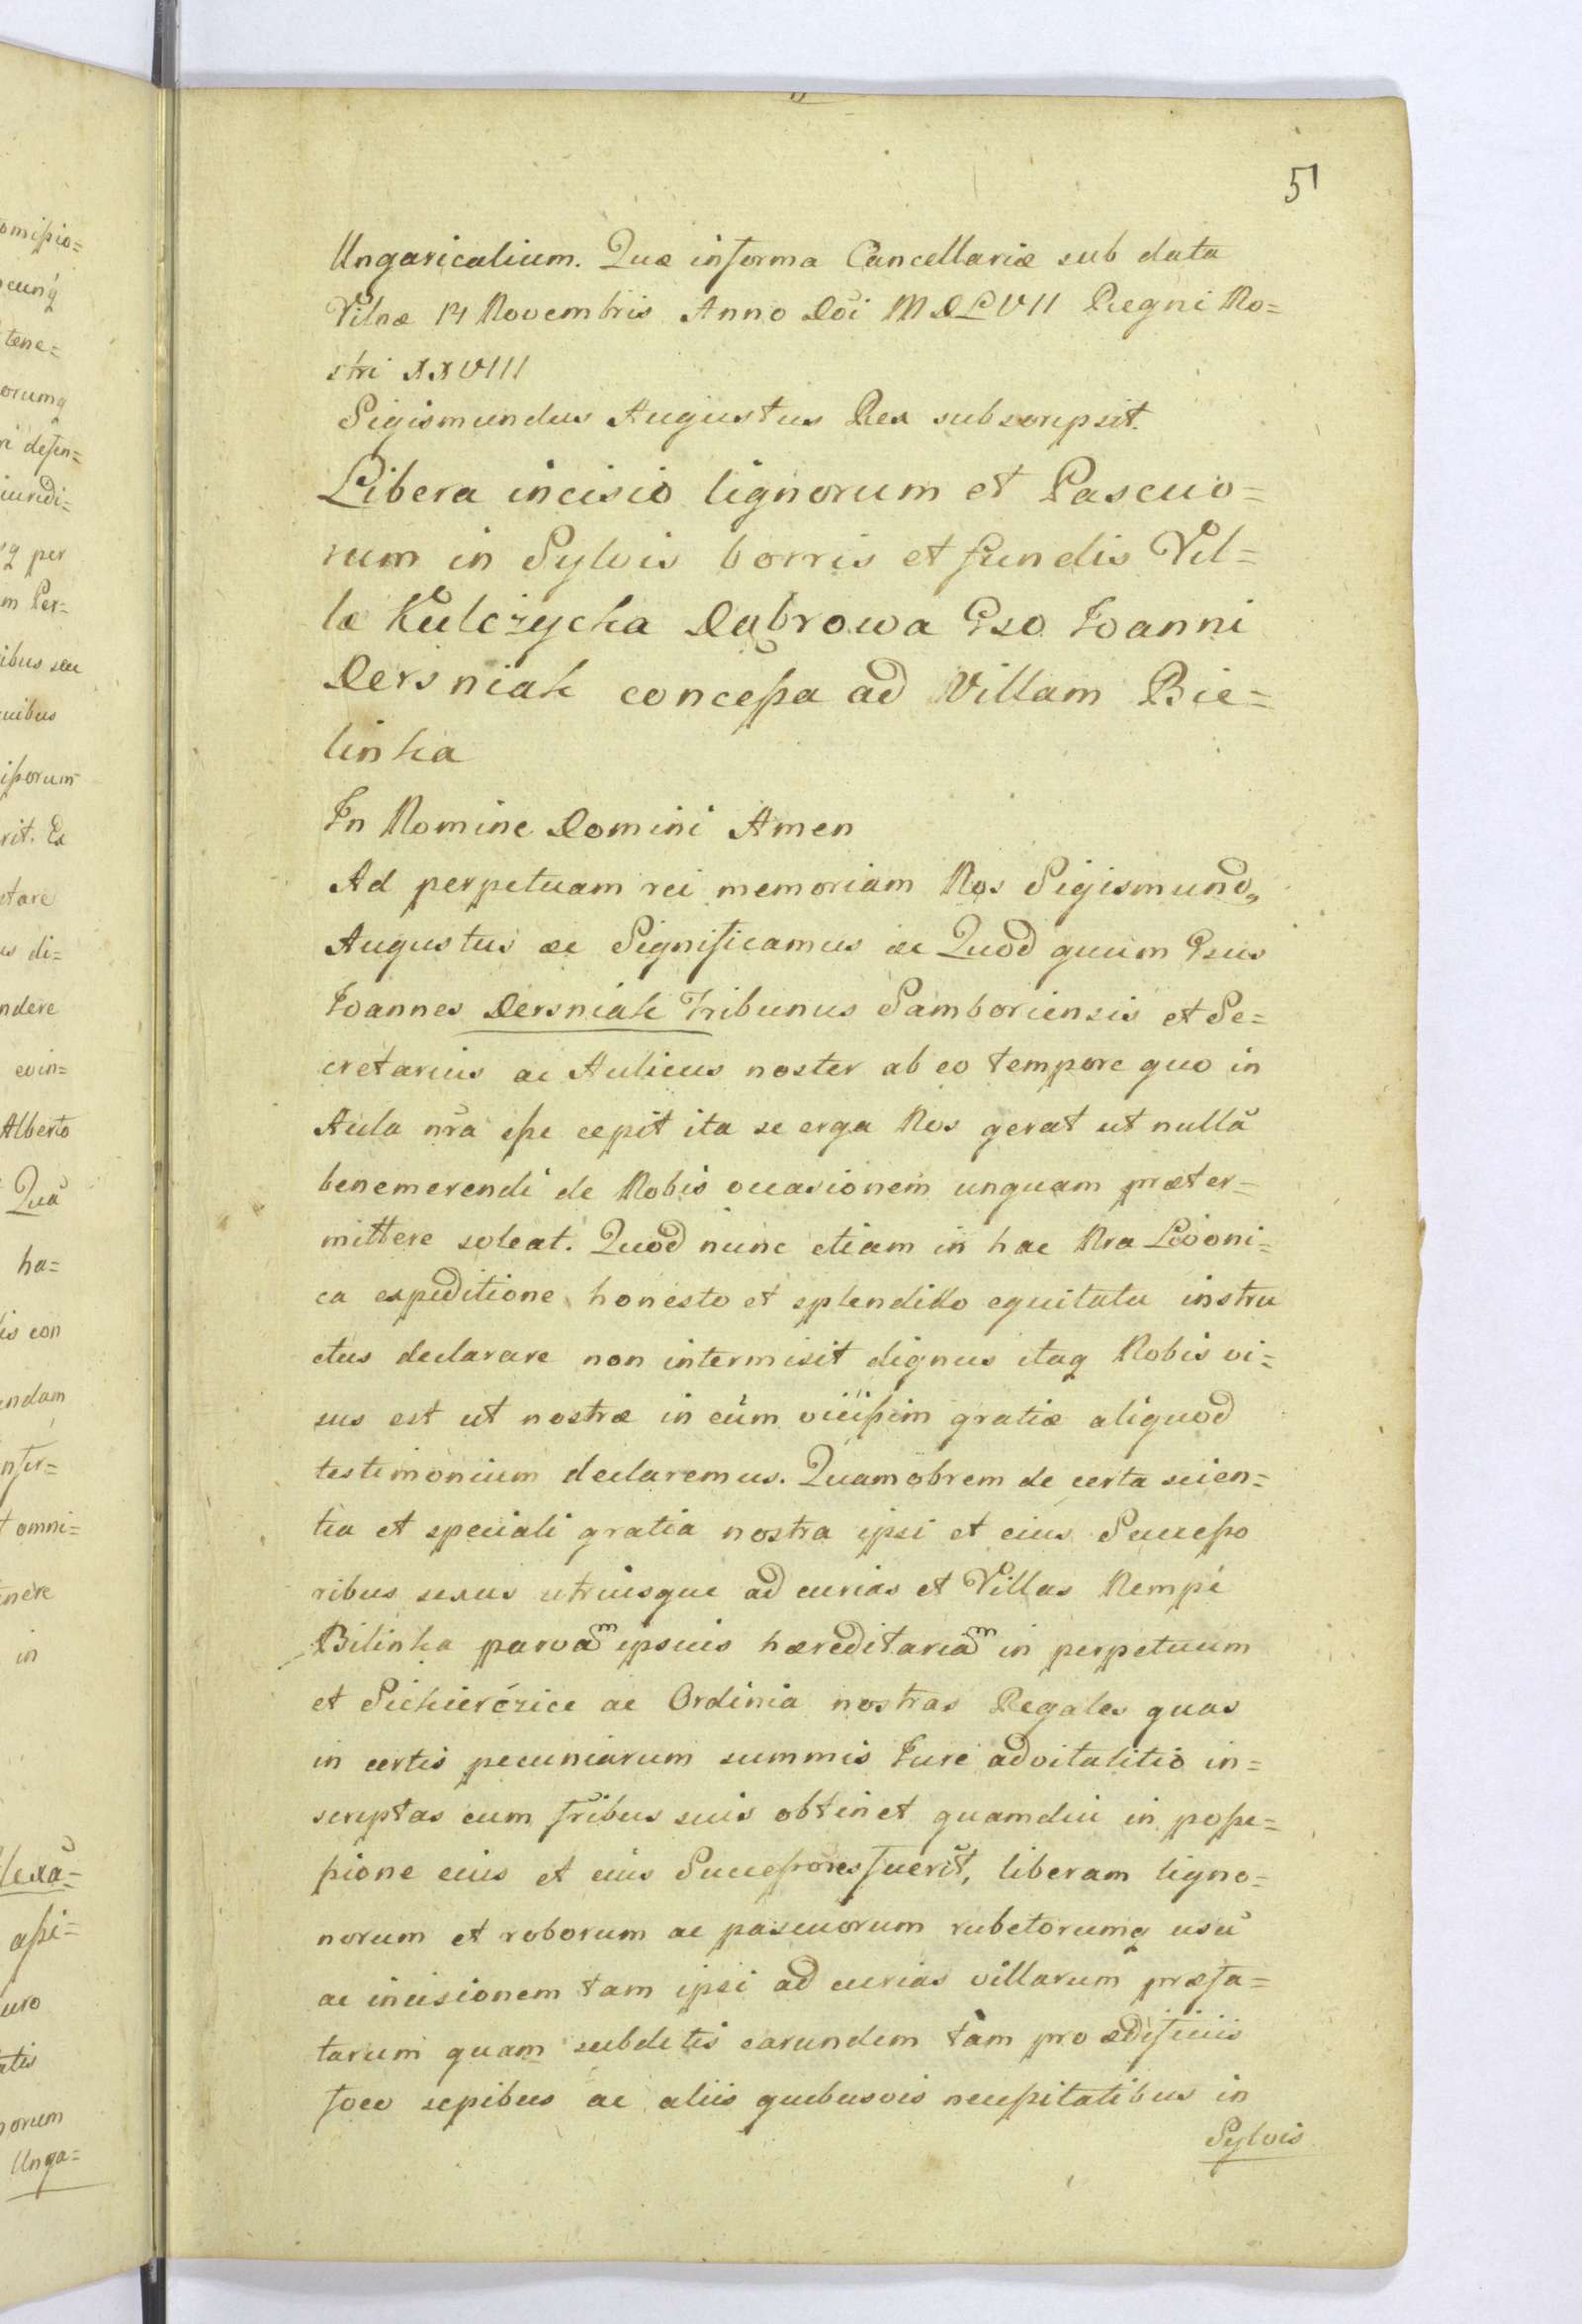 51
Ungaricalium. Quæ informa Cancellariæ sub data
Vilnæ 14 Novembris Anno Dõi MDLVII Regni No=
stri XXVIII
Sigismundus Augustus Rex subscripsit.
Libera incisio lignorum et Pascuo=
rum in Sylvis borris et fundis Vil=
læ Kulczycka Dąbrowa Gso Ioanni
Dersniak concessa ad Villam Bie=
linka
In Nomine Domini Amen
Ad perpetuam rei memoriam Nos Sigismund9
Augustus ac Significamus ac Quod quum Gsus
Ioannes Dersniak Tribunus Samboriensis et Se=
cretarius ac Aulicus noster ab eo tempore quo in
Aula nrã esse cepit ita se erga Nos gerat ut nullã
benemerendi de Nobis occasionem unquam præter=
mittere soleat. Quod nunc etiam in hac Nra Livoni=
ca expeditione honesto et splendido equitatu instru
ctus declarare non intermisit dignus itaq Nobis vi=
sus est ut nostræ in eum vicissim gratiæ aliquod
testimonium declaremus. Quamobrem de certa scien=
tia et speciali gratia nostra ipsi et eius Successo
ribus sexus utriusque ad curias et Villas Nempe
Bilinka parvam ipsuis hæreditariam in perpetuum
et Siekierczice ac Ordinia nostras Regales quas
in certis pecuniarum summis Iure advitalitio in=
scriptas cum frĩbus suis obtinet quamdiu in posse=
ssione eius et eius Successores fuerĩt, liberam ligno=
norum et roborum ac pascuorum rubetorumq usũ
ac incisionem tam ipsi ad curias villarum præfa=
tarum quam subditis earundem tam pro ædificiis
foco sepibus ac aliis quibusvis necessitatibus in
Sylvis
omissio=
cunq
tene=
orumq
defen=
iuridi=
q per
m Per=
ibus seu
uibus
issorum
rit. Ex
tare
us di=
ndere
evin=
Alberto
Quã
ha=
is con
endam
nfer=
t omni=
nere
in
lexã=
assi=
uro
atis
norum
Unga=